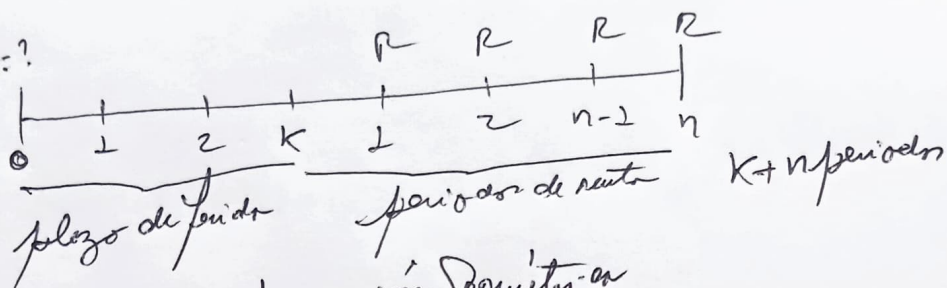 =?
R R R R
0 1 2 K 1 2 n-1 n
plazo diferido periodos de renta K+n periodos